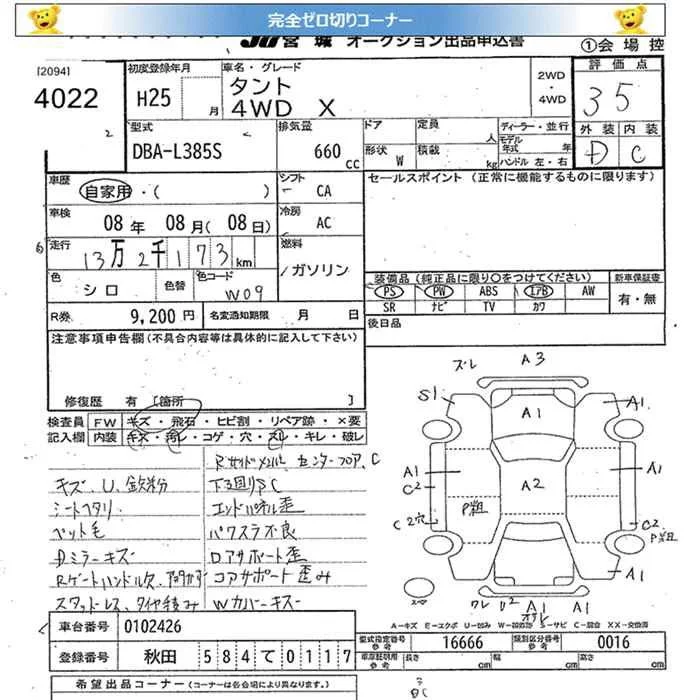 完全ゼロ切りコーナー
JU宮城 オークション出品申込書
①会場控
[2094]
4022
2
初度登録年月
H25 月
車名・グレード
タント
4WD X
2WD
・
4WD
評価点
35
外装 内装
D C
型式
DBA-L385S
排気量
660 cc
ドア
形状 W
定員 人
積載 kg
ディーラー・並行
モデル年式 年
ハンドル 左・右
車歴
自家用・( )
シフト
CA
セールスポイント (正常に機能するものに限ります)
車検
08 年 08 月( 08 日)
冷房
AC
6
走行
13万2千173 km
燃料
ガソリン
色
シロ
色替
色コード
W09
装備品 (純正品に限り○をつけてください)
新車保証書
PS PW ABS エアB AW
有・無
SR ナビ TV カワ
R券
9,200 円
名変通知期限 月 日
後日品
注意事項申告欄(不具合内容等は具体的に記入して下さい)
修復歴 有 [箇所 ]
検査員
記入欄
FW キズ・飛石・ヒビ割・リペア跡・×要
内装 キズ・汚レ・コゲ・穴・スレ・キレ・破レ
キズ、U、鉄粉
シートヘタリ
ペット毛
Dミラーキズ
スタッドレス、タイヤ積み
センターフロア、C
下廻りS C
エンドパネル歪
パワスラ不良
Dコアサポート歪
コアサポート歪み
Wカバーキズ
ズレ A3
S1
A1
A1
A1
C2
A1
A2
P茶目
C2穴
C2
P茶目
A1
ワレ U2 A1 A1
A-キズ E-エクボ U-凹み W-凹波跡 S-サビ C-腐食 XX-交換済
車台番号 0102426
登録番号 秋田 584て0117
型式指定番号 参考 16666
類別区分番号 参考 0016
車庫証明用 参考 長さ cm 幅 cm 高さ cm
希望出品コーナー (コーナーは各会場により異なります。)